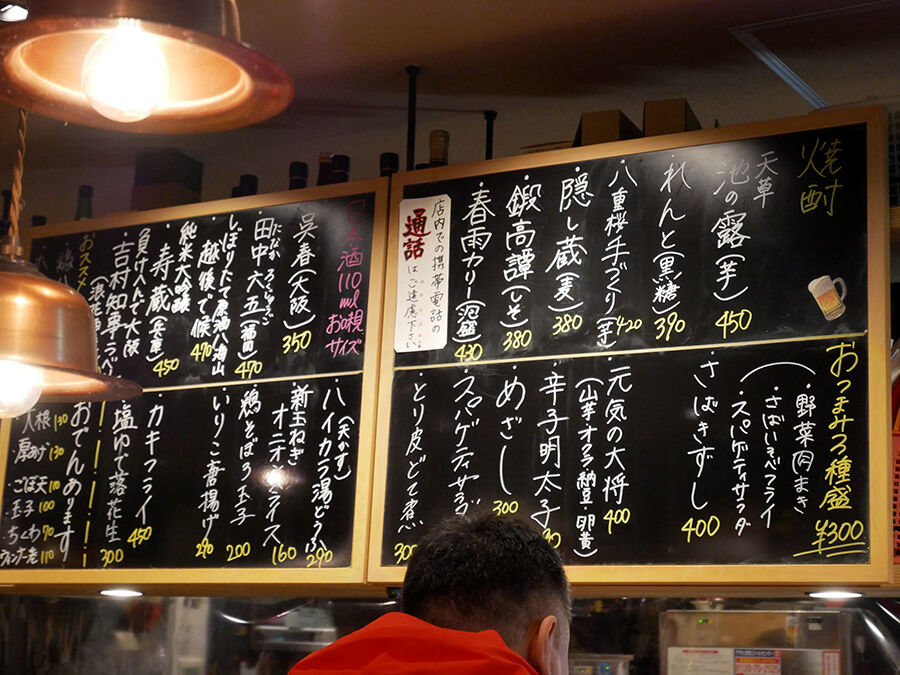 焼酎
天草
池の露(芋) 450
れんと(黒糖) 390
八重桜手づくり(芋) 420
隠し蔵(麦) 380
鍛高譚(しそ) 380
春雨カリー(泡盛) 430
店内での携帯電話の
通話
はご遠慮下さい
おつまみ3種盛
¥300
野菜肉まき
スパゲティサラダ
さばきずし 400
元気の大将
(山芋・オクラ・納豆・卵黄) 400
辛子明太子
めざし 300
スパゲティサラダ
とり皮どて煮 300
日本酒110ml
お味見
サイズ
呉春(大阪) 350
たなか ろくじゅうご
田中六五(福岡) 470
しぼりたて原酒八海山
越後で候 470
純米大吟醸
寿蔵(兵庫) 450
負けへんで大阪
吉村知事ラベル
おススメ
(天かす)
ハイカラ湯どうふ 290
新玉ねぎ
オニオンスライス 160
鶏そぼろ玉子 200
いりこ唐揚げ 290
カキフライ 450
塩ゆで落花生 300
おでんあります
大根 130
厚あげ 130
ごぼ天 110
玉子 100
ちくわ 70
ウィンナー巻 110